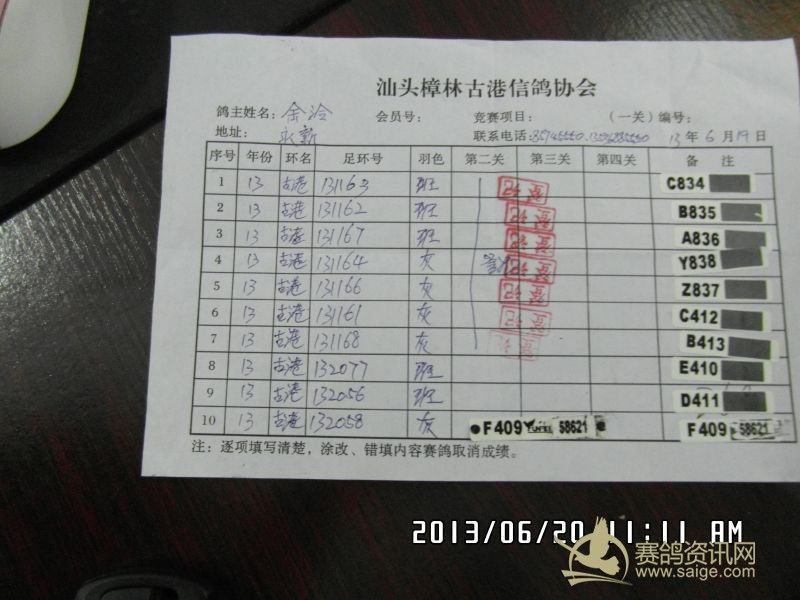 汕头樟林古港信鸽协会
鸽主姓名: 会员号: 竞赛项目: （一关）编号:
地址: 永新 联系电话: 13年6月19日
序号 年份 环名 足环号 羽色 第二关 第三关 第四关 备 注
1 13 古港 131163 斑 C834
2 13 古港 131162 斑 B835
3 13 古港 131167 斑 A836
4 13 古港 131164 灰 Y838
5 13 古港 131166 灰 Z837
6 13 古港 131161 灰 C412
7 13 古港 131168 灰 B413
8 13 古港 132077 斑 E410
9 13 古港 132056 斑 D411
10 13 古港 132058 灰 F409 58621 F409 58621
注：逐项填写清楚，涂改、错填内容赛鸽取消成绩。
2013/06/20 11:11 AM
赛鸽资讯网
www.saige.com